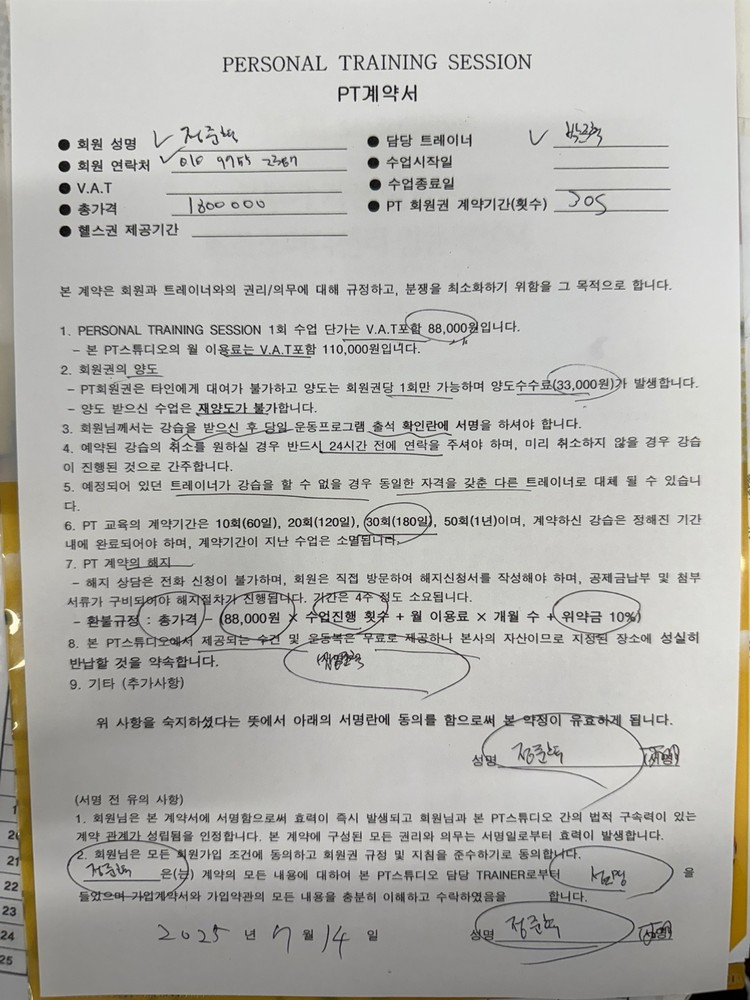 PERSONAL TRAINING SESSION
PT계약서
● 회원 성명 정준혁
● 담당 트레이너
● 회원 연락처
● 수업시작일
● V.A.T
● 수업종료일
● 총가격 1800000
● PT 회원권 계약기간(횟수) 30S
● 헬스권 제공기간
본 계약은 회원과 트레이너와의 권리/의무에 대해 규정하고, 분쟁을 최소화하기 위함을 그 목적으로 합니다.
1. PERSONAL TRAINING SESSION 1회 수업 단가는 V.A.T포함 88,000원입니다.
- 본 PT스튜디오의 월 이용료는 V.A.T포함 110,000원입니다.
2. 회원권의 양도
- PT회원권은 타인에게 대여가 불가하고 양도는 회원권당 1회만 가능하며 양도수수료(33,000원)가 발생합니다.
- 양도 받으신 수업은 재양도가 불가합니다.
3. 회원님께서는 강습을 받으신 후 당일 운동프로그램 출석 확인란에 서명을 하셔야 합니다.
4. 예약된 강습의 취소를 원하실 경우 반드시 24시간 전에 연락을 주셔야 하며, 미리 취소하지 않을 경우 강습
이 진행된 것으로 간주합니다.
5. 예정되어 있던 트레이너가 강습을 할 수 없을 경우 동일한 자격을 갖춘 다른 트레이너로 대체 될 수 있습니
다.
6. PT 교육의 계약기간은 10회(60일), 20회(120일), 30회(180일), 50회(1년)이며, 계약하신 강습은 정해진 기간
내에 완료되어야 하며, 계약기간이 지난 수업은 소멸됩니다.
7. PT 계약의 해지
- 해지 상담은 전화 신청이 불가하며, 회원은 직접 방문하여 해지신청서를 작성해야 하며, 공제금납부 및 첨부
서류가 구비되어야 해지절차가 진행됩니다. 기간은 4주 정도 소요됩니다.
- 환불규정 : 총가격 - (88,000원 × 수업진행 횟수 + 월 이용료 × 개월 수 + 위약금 10%)
8. 본 PT스튜디오에서 제공되는 수건 및 운동복은 무료로 제공하나 본사의 자산이므로 지정된 장소에 성실히
반납할 것을 약속합니다.
9. 기타 (추가사항)
위 사항을 숙지하셨다는 뜻에서 아래의 서명란에 동의를 함으로써 본 약정이 유효하게 됩니다.
성명 정준혁 (서명)
(서명 전 유의 사항)
1. 회원님은 본 계약서에 서명함으로써 효력이 즉시 발생되고 회원님과 본 PT스튜디오 간의 법적 구속력이 있는
계약 관계가 성립됨을 인정합니다. 본 계약에 구성된 모든 권리와 의무는 서명일로부터 효력이 발생합니다.
2. 회원님은 모든 회원가입 조건에 동의하고 회원권 규정 및 지침을 준수하기로 동의합니다.
정준혁 은(는) 계약의 모든 내용에 대하여 본 PT스튜디오 담당 TRAINER로부터 설명 을
들었으며 가입계약서와 가입약관의 모든 내용을 충분히 이해하고 수락하였음을 합니다.
2025 년 7 월 14 일 성명 정준혁 (서명)
20
21
22
23
24
25